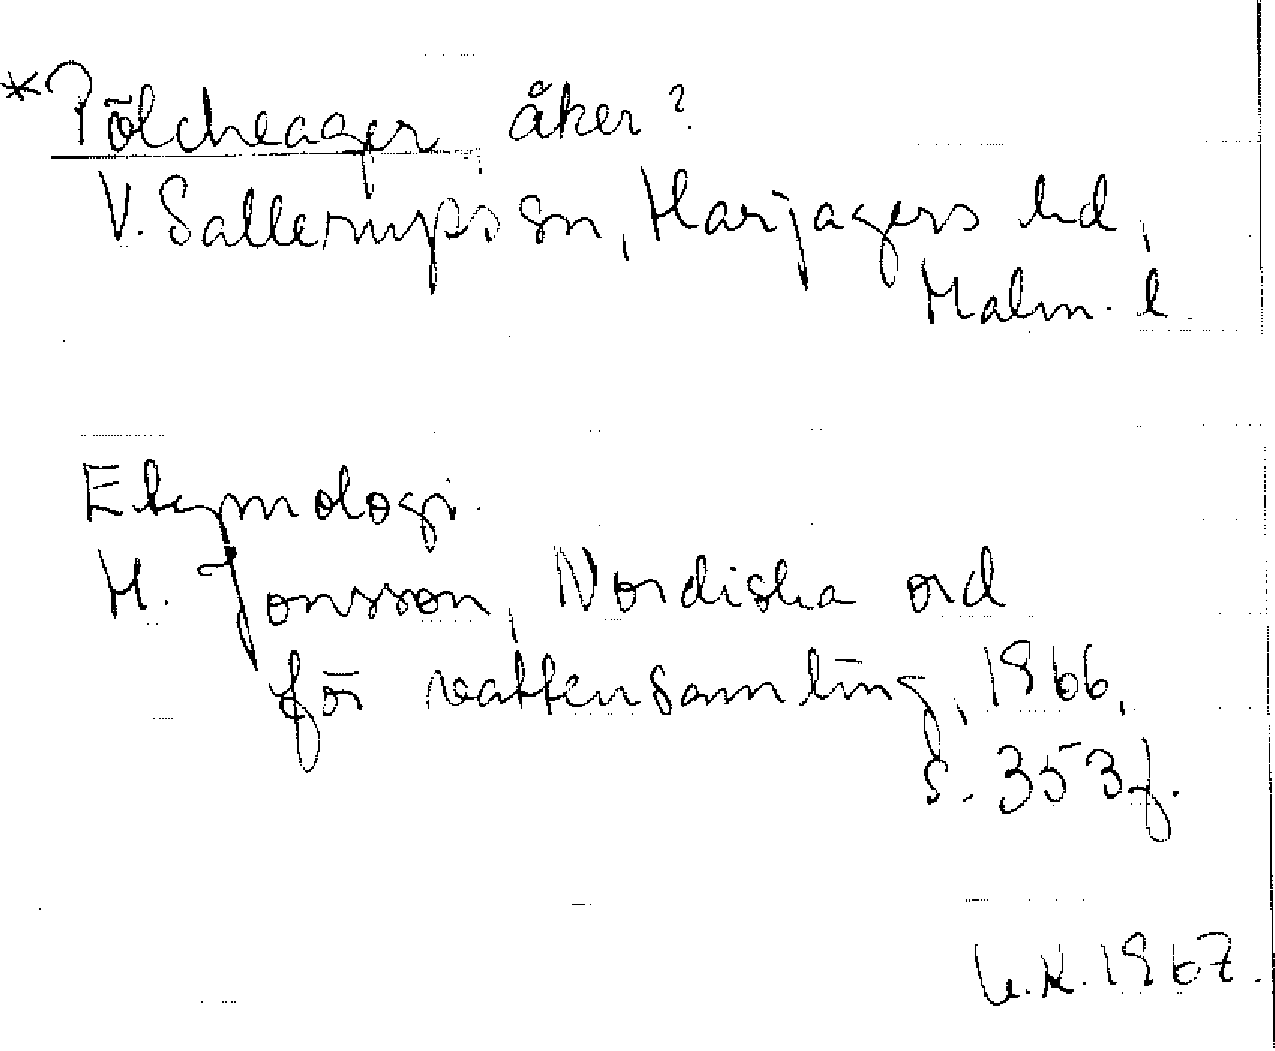 *Pölcheager åker?
V. Sallerups sn, Harjagers hd,
Malm. l.
Etymologi.
H. Jonsson, Nordiska ord
för vattensamling, 1966,
s. 353 f.
1967.